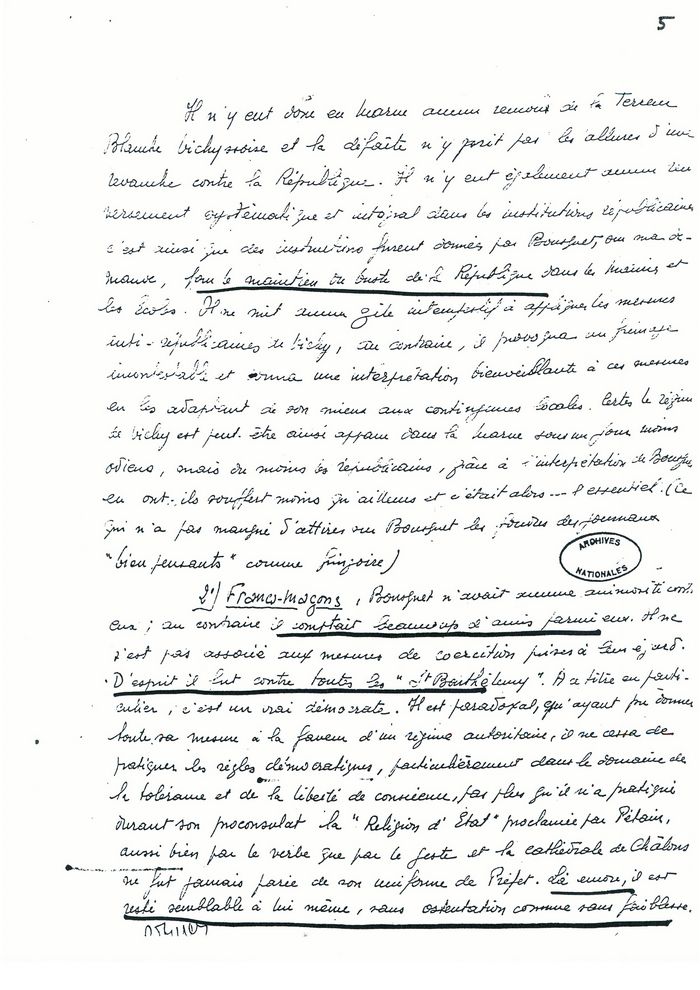 5
Il n'y eut donc en Marne aucun remous de la Terreur
Blanche vichyssoise et la défaite n'y prit pas les allures d'une
revanche contre la République. Il n'y eut également aucun ren
versement systématique et intégral dans les institutions républicaines
c'est ainsi que des instructions furent données par Bousquet, sur ma de-
mande, pour le maintien du buste de la République dans les mairies et
les écoles. Il ne mit aucun zèle intempestif à appliquer les mesures
anti-républicaines de Vichy, au contraire, il provoqua un freinage
incontestable et donna une interprétation bienveillante à ces mesures
en les adaptant de son mieux aux contingences locales. Certes le régime
de Vichy est peut-être ainsi apparu dans la Marne sous un jour moins
odieux, mais du moins les républicains, grâce à l'interprétation de Bousquet,
en ont-ils souffert moins qu'ailleurs et c'était alors --- l'essentiel. (Ce
qui n'a pas manqué d'attirer sur Bousquet les foudres des journaux
"bien pensants" comme Gringoire)
ARCHIVES
NATIONALES
2°) Francs-Maçons, Bousquet n'avait aucune animosité contre
eux ; au contraire il comptait beaucoup d'amis parmi eux. Il ne
s'est pas associé aux mesures de coercition prises à leur égard.
D'esprit il fut contre toutes les "St Barthélemy". A ce titre en parti-
culier, c'est un vrai démocrate. Il est paradoxal, qu'ayant pu donner
toute sa mesure à la faveur d'un régime autoritaire, il ne cessa de
pratiquer les règles démocratiques, particulièrement dans le domaine de
la tolérance et de la liberté de conscience, pas plus qu'il n'a pratiqué
durant son proconsulat la "Religion d'Etat" proclamée par Pétain,
aussi bien par le verbe que par le geste et la cathédrale de Châlons
ne fut jamais parée de son uniforme de Préfet. Là encore, il est
resté semblable à lui même, sans ostentation comme sans faiblesse.